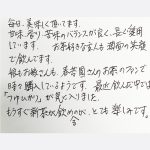 毎日、美味しく頂いてます。
甘味、香り、苦味のバランスが良く、長く愛用
しています。 お茶好きな主人も満面の笑顔
で飲んでます。
娘もお姉さんも、春芳園さんのお茶のファンで
時々購入しているようです。最近飲んだ中では
「つゆひかり」が気に入りました。
もうすぐ新茶が飲めるのが、とても楽しみです。